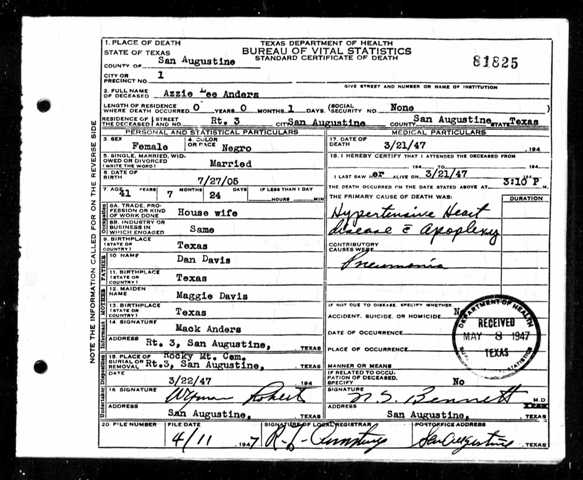 1. PLACE OF DEATH
STATE OF TEXAS
COUNTY OF San Augustine
TEXAS DEPARTMENT OF HEALTH
BUREAU OF VITAL STATISTICS
STANDARD CERTIFICATE OF DEATH
81825
CITY OR PRECINCT NO. 1
GIVE STREET AND NUMBER OR NAME OF INSTITUTION
2. FULL NAME OF DECEASED Azzie Lee Anders
LENGTH OF RESIDENCE WHERE DEATH OCCURRED 0 YEARS 0 MONTHS 1 DAYS (SOCIAL SECURITY NO. None
RESIDENCE OF THE DECEASED STREET AND NO. Rt. 3 CITY San Augustine COUNTY San Augustine STATE Texas
PERSONAL AND STATISTICAL PARTICULARS
3. SEX Female
4. COLOR OR RACE Negro
5. SINGLE, MARRIED, WIDOWED OR DIVORCED (WRITE THE WORD) Married
6. DATE OF BIRTH 7/27/05
7. AGE 41 YEARS 7 MONTHS 24 DAYS IF LESS THAN 1 DAY HOURS MIN
8A. TRADE, PROFESSION OR KIND OF WORK DONE House wife
8B. INDUSTRY OR BUSINESS IN WHICH ENGAGED Same
9. BIRTHPLACE (STATE OR COUNTRY) Texas
FATHER
10 NAME Dan Davis
11. BIRTHPLACE (STATE OR COUNTRY) Texas
MOTHER
12. MAIDEN NAME Maggie Davis
13. BIRTHPLACE (STATE OR COUNTRY) Texas
14 SIGNATURE Mack Anders
ADDRESS Rt. 3, San Augustine, TEXAS
15. PLACE OF BURIAL OR REMOVAL Rocky Mt. Cem.
Rt.3, San Augustine, TEXAS
DATE 3/22/47 194
16 SIGNATURE
ADDRESS San Augustine, TEXAS
MEDICAL PARTICULARS
17. DATE OF DEATH 3/21/47 194
18. I HEREBY CERTIFY THAT I ATTENDED THE DECEASED FROM
194 TO 194
I LAST SAW er ALIVE ON 3/21/47 194
THE DEATH OCCURRED ON THE DATE STATED ABOVE AT 3:10 P M.
THE PRIMARY CAUSE OF DEATH WAS: DURATION
Hypertensive Heart
disease c̄ Apoplexy
CONTRIBUTORY CAUSES WERE
Pneumonia
IF NOT DUE TO DISEASE, SPECIFY WHETHER
ACCIDENT, SUICIDE, OR HOMICIDE
DATE OF OCCURRENCE
PLACE OF OCCURRENCE
MANNER OR MEANS
IF RELATED TO OCCUPATION OF DECEASED, SPECIFY No
SIGNATURE N. S. Bennett M.D.
ADDRESS San Augustine, TEXAS
DEPARTMENT OF HEALTH
RECEIVED
MAY 8 1947
TEXAS
20 FILE NUMBER
FILE DATE 4/11 1947
SIGNATURE OF LOCAL REGISTRAR
POSTOFFICE ADDRESS San Augustine, TEXAS
NOTE THE INFORMATION CALLED FOR ON THE REVERSE SIDE